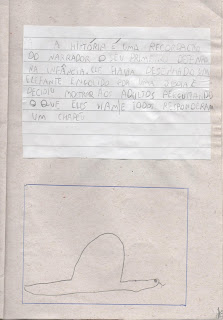 A HISTÓRIA É UMA RECORDAÇÃO
DO NARRADOR O SEU PRIMEIRO DESENHO
NA INFÂNCIA, ELE HAVIA DESENHADO UM
ELEFANTE ENGOLIDO POR UMA
DECIDIU MOSTRAR AOS ADULTOS PERGUNTANDO
O QUE ELES TODOS RESPONDERAM
UM CHAPÉU